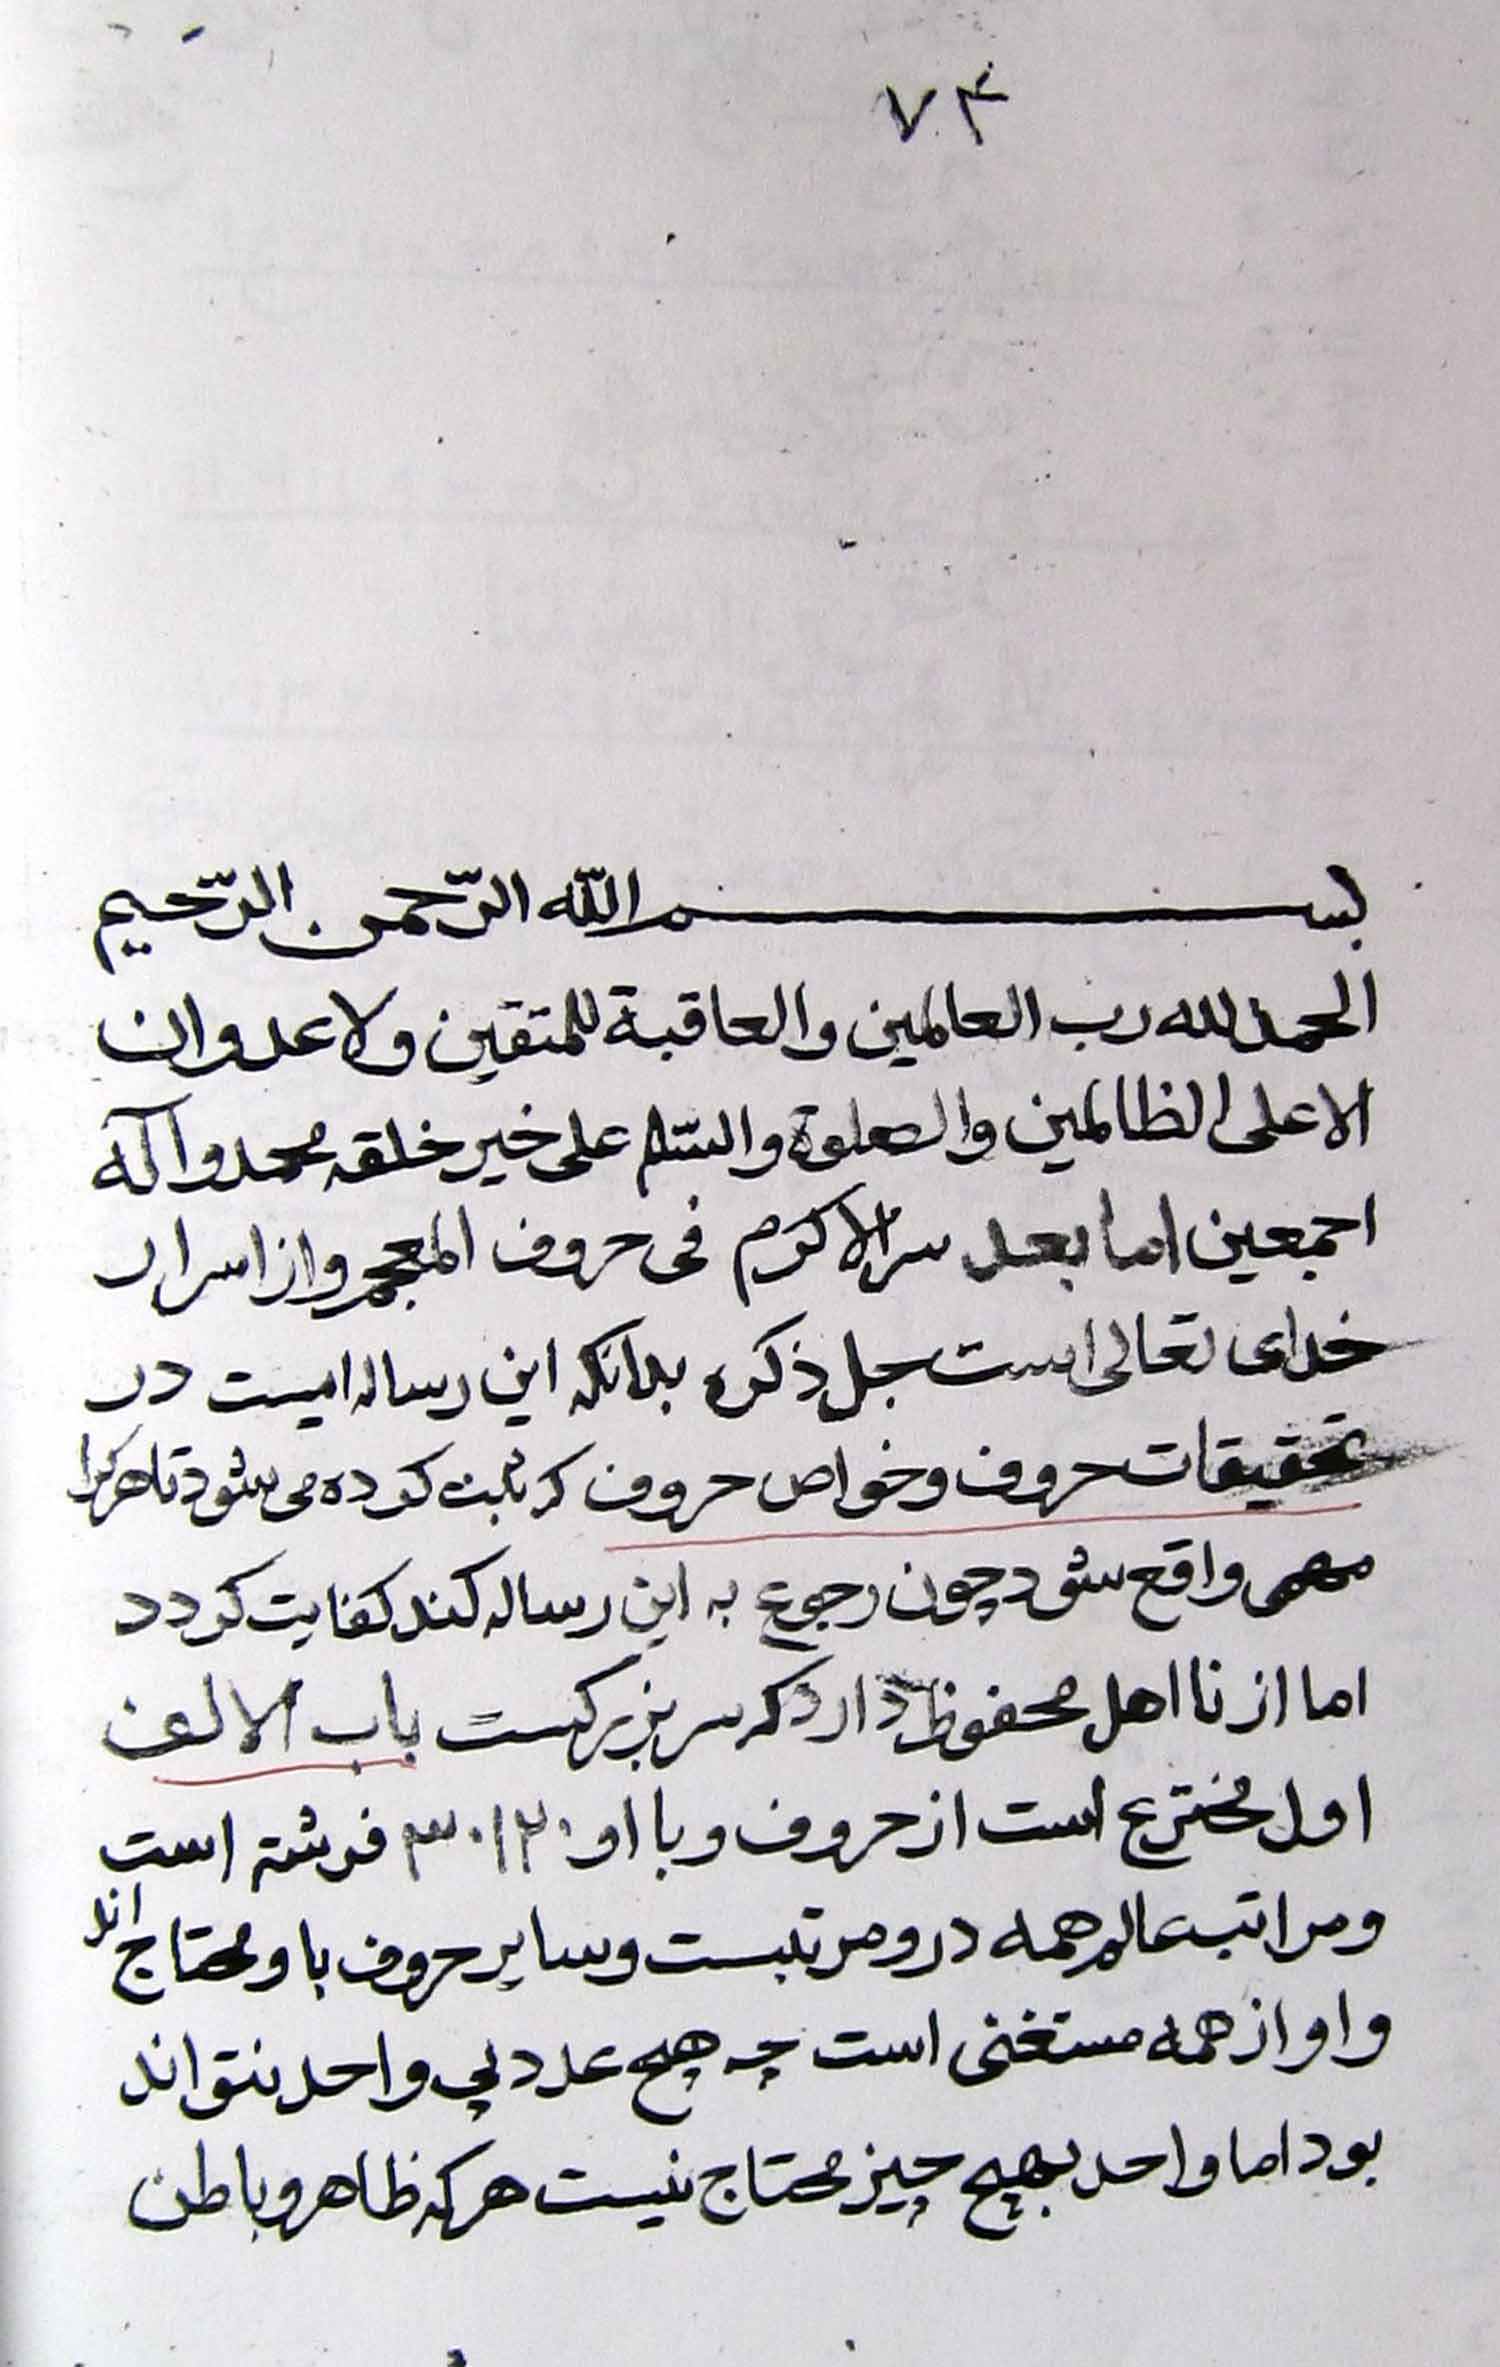 ۷۴
بسم الله الرّحمن الرّحیم
الحمد لله رب العالمین والعاقبة للمتقین ولا عدوان
الا علی الظالمین والصلوة والسّلام علی خیر خلقه محمد وآله
اجمعین اما بعد سر الاکرم فی حروف المعجم و از اسرار
خدای تعالی است جل ذکره بدانکه این رساله ایست در
تحقیقات حروف وخواص حروف که ثابت کرده می شود تا هر کرا
مهمی واقع شود چون رجوع به این رساله کند کفایت کردد
اما از نا اهل محفوظ دارد که سر بزرکست باب الالف
اول مخترع است از حروف و با او ۳۰۱۲۰ فرشته است
و مراتب عالم همه در و مرتبست و سایر حروف باو محتاج اند
و او از همه مستغنی است چه هیچ عدد بی واحد نتواند
بود اما واحد بهیچ چیز محتاج نیست هر که ظاهر و باطن